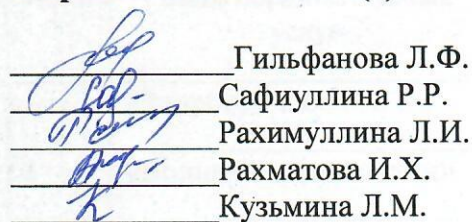 Гильфанова Л.Ф.
Сафиуллина Р.Р.
Рахимуллина Л.И.
Рахматова И.Х.
Кузьмина Л.М.